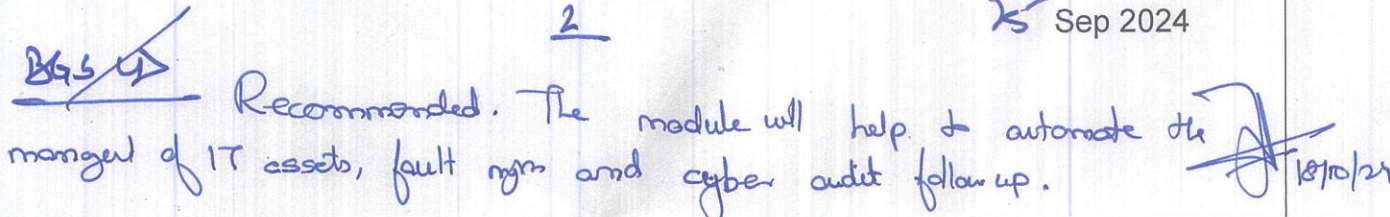 2
25 Sep 2024
BGS
Recommended. The module will help to automate the
mangent of IT assets, fault mgm and cyber audit follow up.
18/10/24